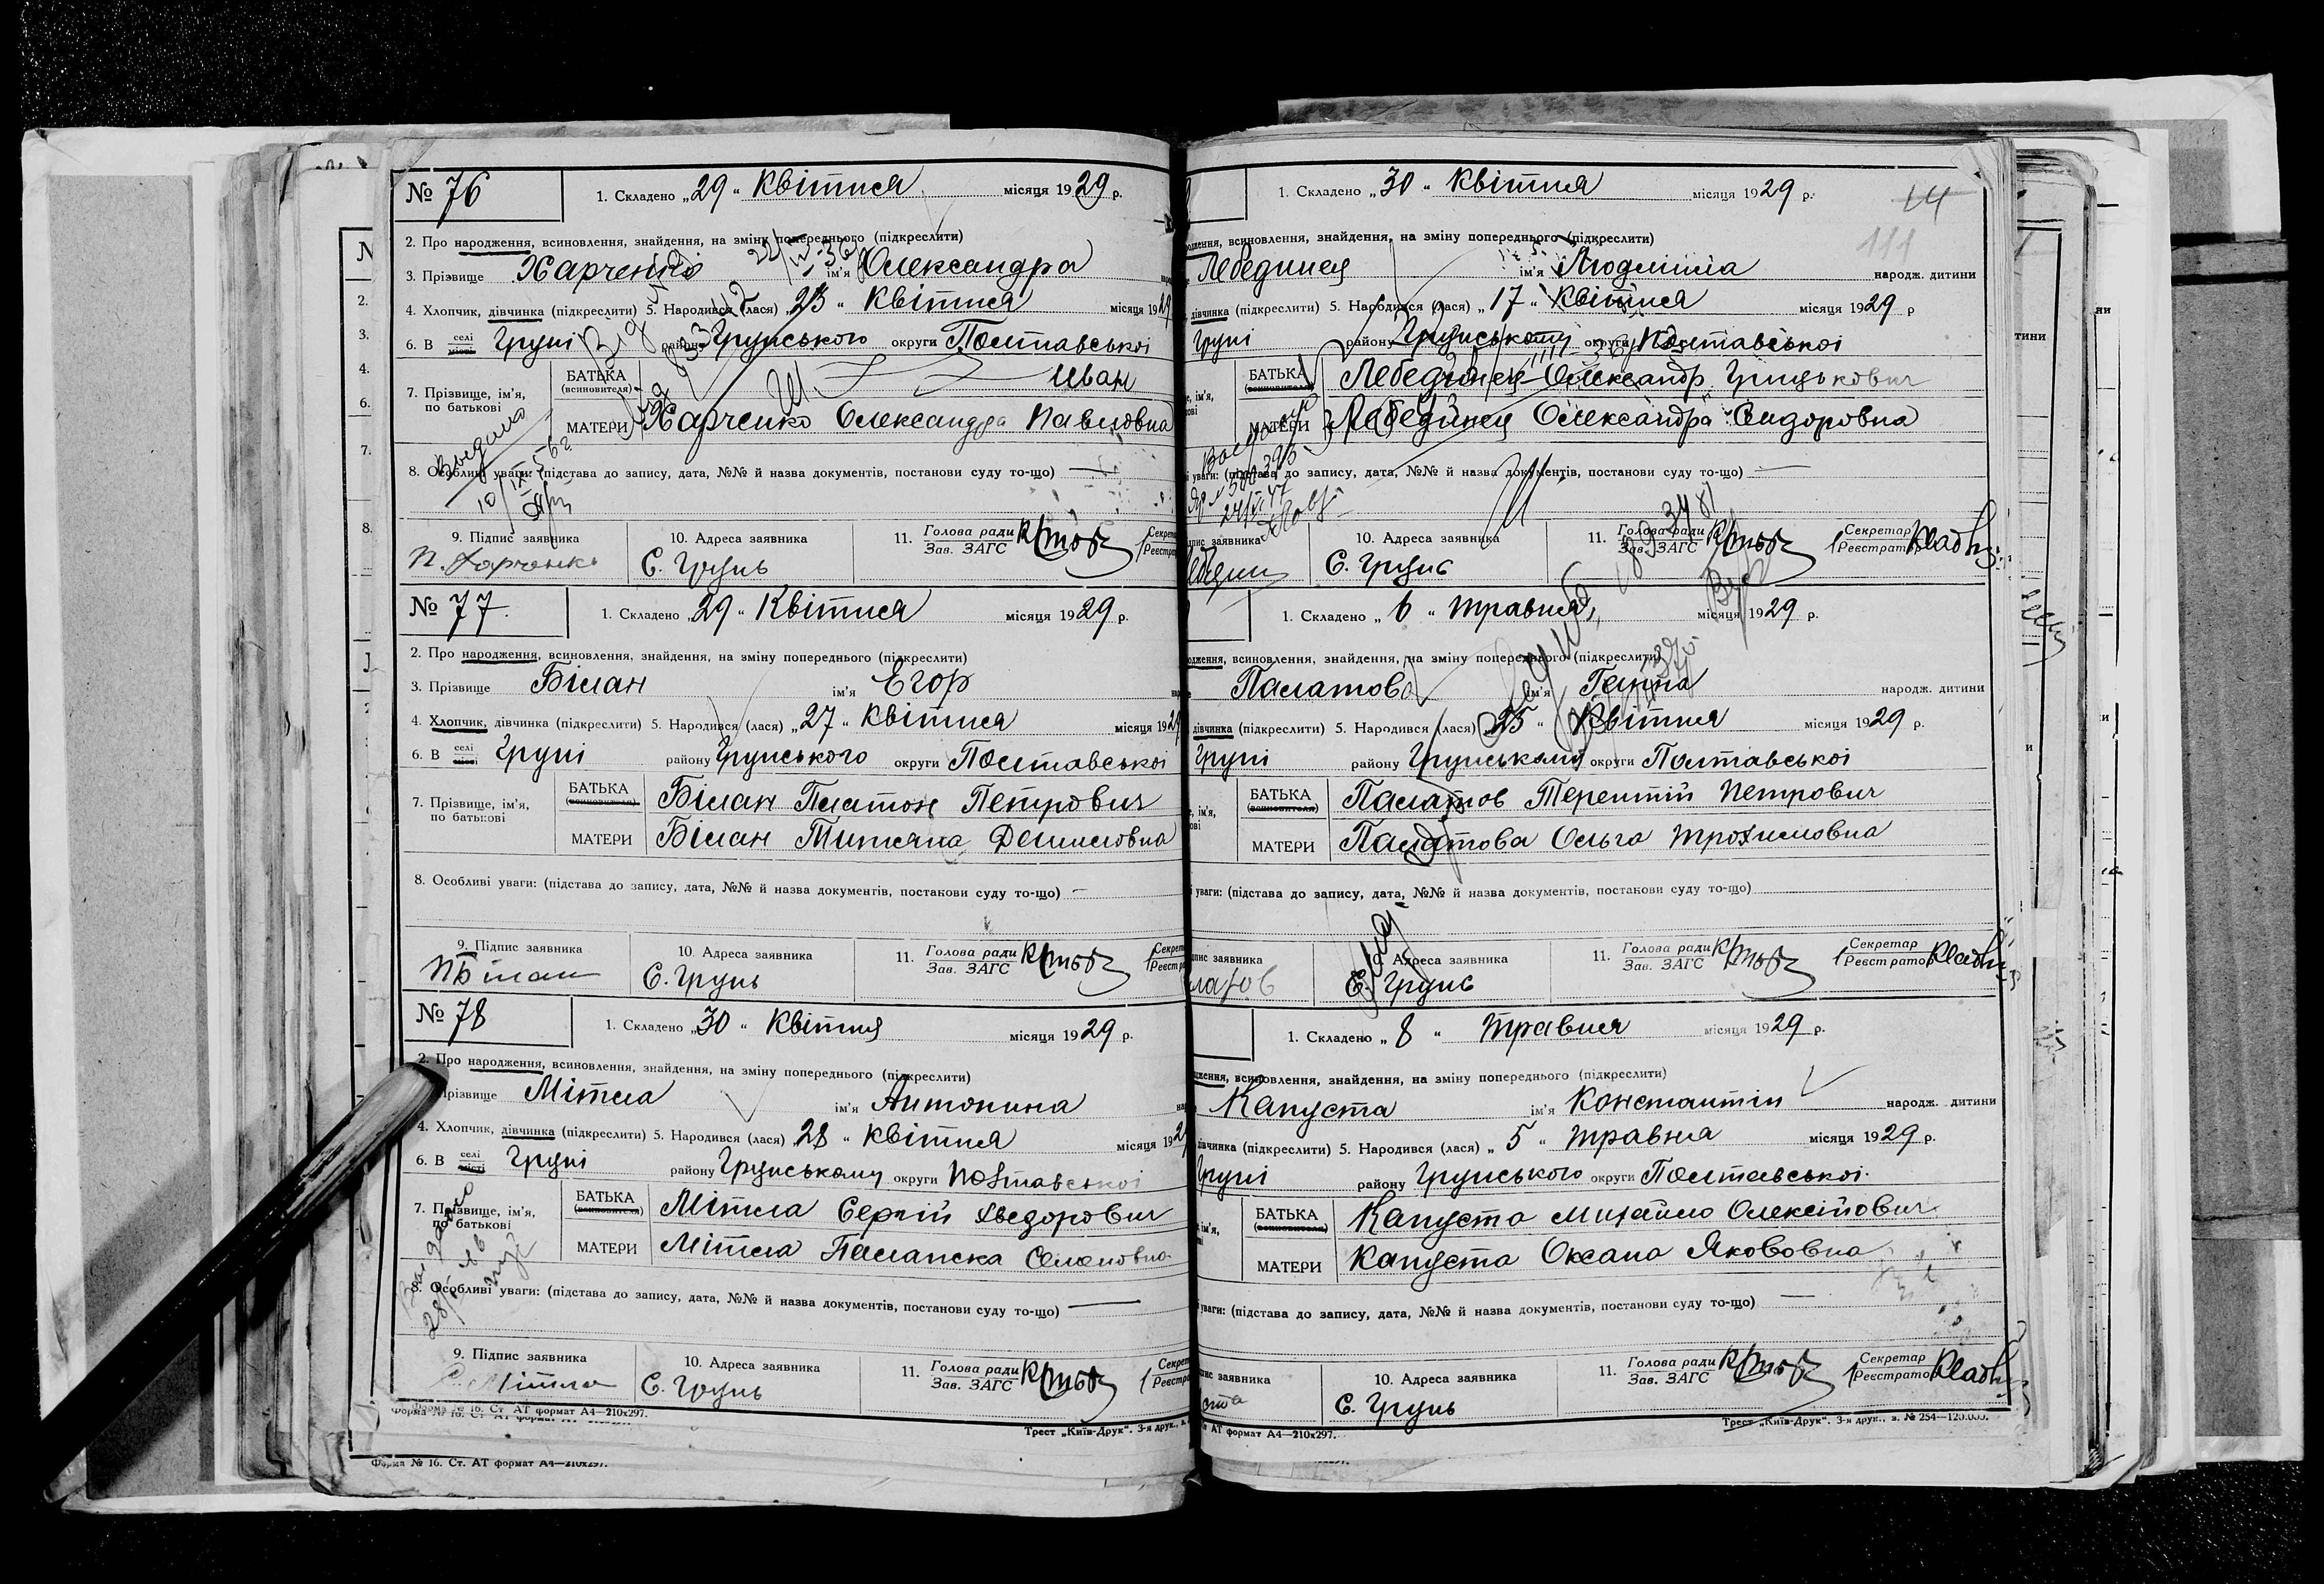 № 76
1. Складено „29“ Квітня місяця 1929 р.
2. Про народження, всиновлення, знайдення, на зміну попереднього (підкреслити)
3. Прізвище Харченко ім'я Олександра
4. Хлопчик, дівчинка (підкреслити) 5. Народився (лася) „23“ Квітня місяця 19
6. В селі місті Груні району Грунського округи Полтавської
7. Прізвище, ім'я, по батькові
БАТЬКА (всиновителя) Иван
МАТЕРИ Харченко Олександра Павловна
8. Особливі уваги: (підстава до запису, дата, №№ й назва документів, постанови суду то-що) —
9. Підпис заявника П. Харченко
10. Адреса заявника С. Грунь
11. Голова ради Зав. ЗАГС
№ 77.
1. Складено „29“ Квітня місяця 1929 р.
2. Про народження, всиновлення, знайдення, на зміну попереднього (підкреслити)
3. Прізвище Білан ім'я Егор
4. Хлопчик, дівчинка (підкреслити) 5. Народився (лася) „27“ Квітня місяця 1929
6. В селі місті Груні району Грунського округи Полтавської
7. Прізвище, ім'я, по батькові
БАТЬКА (всиновителя) Білан Платон Петрович
МАТЕРИ Білан Титяна Денисовна
8. Особливі уваги: (підстава до запису, дата, №№ й назва документів, постанови суду то-що) —
9. Підпис заявника ПБілан
10. Адреса заявника С. Грунь
11. Голова ради Зав. ЗАГС
№ 78
1. Складено „30“ Квітня місяця 1929 р.
2. Про народження, всиновлення, знайдення, на зміну попереднього (підкреслити)
Прізвище Мітла ім'я Антонина
4. Хлопчик, дівчинка (підкреслити) 5. Народився (лася) 28“ Квітня місяця 192
6. В селі місті Груні району Грунському округи Полтавської
7. Прізвище, ім'я, по батькові
БАТЬКА (всиновителя) Мітла Сергій Хведорович
МАТЕРИ Мітла Палапска
8. Особливі уваги: (підстава до запису, дата, №№ й назва документів, постанови суду то-що) —
9. Підпис заявника С. Мітла
10. Адреса заявника С. Грунь
11. Голова ради Зав. ЗАГС
Форма № 16. Ст. АТ формат А4—210х297.
Трест „Київ-Друк“. 3-я друк.,
Форма № 16. Ст. АТ формат А4—210х297.
1. Складено „30“ Квітня місяця 1929 р.
14
111
всиновлення, знайдення, на зміну попереднього (підкреслити)
Лебединец ім'я Людміла народж. дитини
дівчинка (підкреслити) 5. Народився (лася) „17“ Квітня місяця 1929 р
Груні району Грунському округи Полтавської
БАТЬКА (всиновителя) Лебединец Олександр Грицькович
МАТЕРИ Лебединец Олександра Сидоровна
уваги: (підстава до запису, дата, №№ й назва документів, постанови суду то-що) —
10. Адреса заявника С. Грунь
11. Голова ради Зав. ЗАГС
Секретар Реєстратор
1. Складено „6“ травня місяця 1929 р.
всиновлення, знайдення, на зміну попереднього (підкреслити)
Палатова ім'я Ганна народж. дитини
дівчинка (підкреслити) 5. Народився (лася) „25“ Квітня місяця 1929 р.
Груні району Грунському округи Полтавської
БАТЬКА (всиновителя) Палатов Терентій Петрович
МАТЕРИ Палатова Ольга Трохимовна
уваги: (підстава до запису, дата, №№ й назва документів, постанови суду то-що)
10. Адреса заявника С. Грунь
11. Голова ради Зав. ЗАГС
Секретар Реєстратор
1. Складено „8“ травня місяця 1929 р.
всиновлення, знайдення, на зміну попереднього (підкреслити)
Капуста ім'я Константін народж. дитини
дівчинка (підкреслити) 5. Народився (лася) „5“ травня місяця 1929 р.
Груні району Грунського округи Полтавської
БАТЬКА (всиновителя) Капуста Михайло Олексійович
МАТЕРИ Капуста Оксана Яковovна
уваги: (підстава до запису, дата, №№ й назва документів, постанови суду то-що) —
10. Адреса заявника С. Грунь
11. Голова ради Зав. ЗАГС
Секретар Реєстратор
АТ формат А4—210х297.
Трест „Київ-Друк“. 3-я друк., з. № 254—120.000.